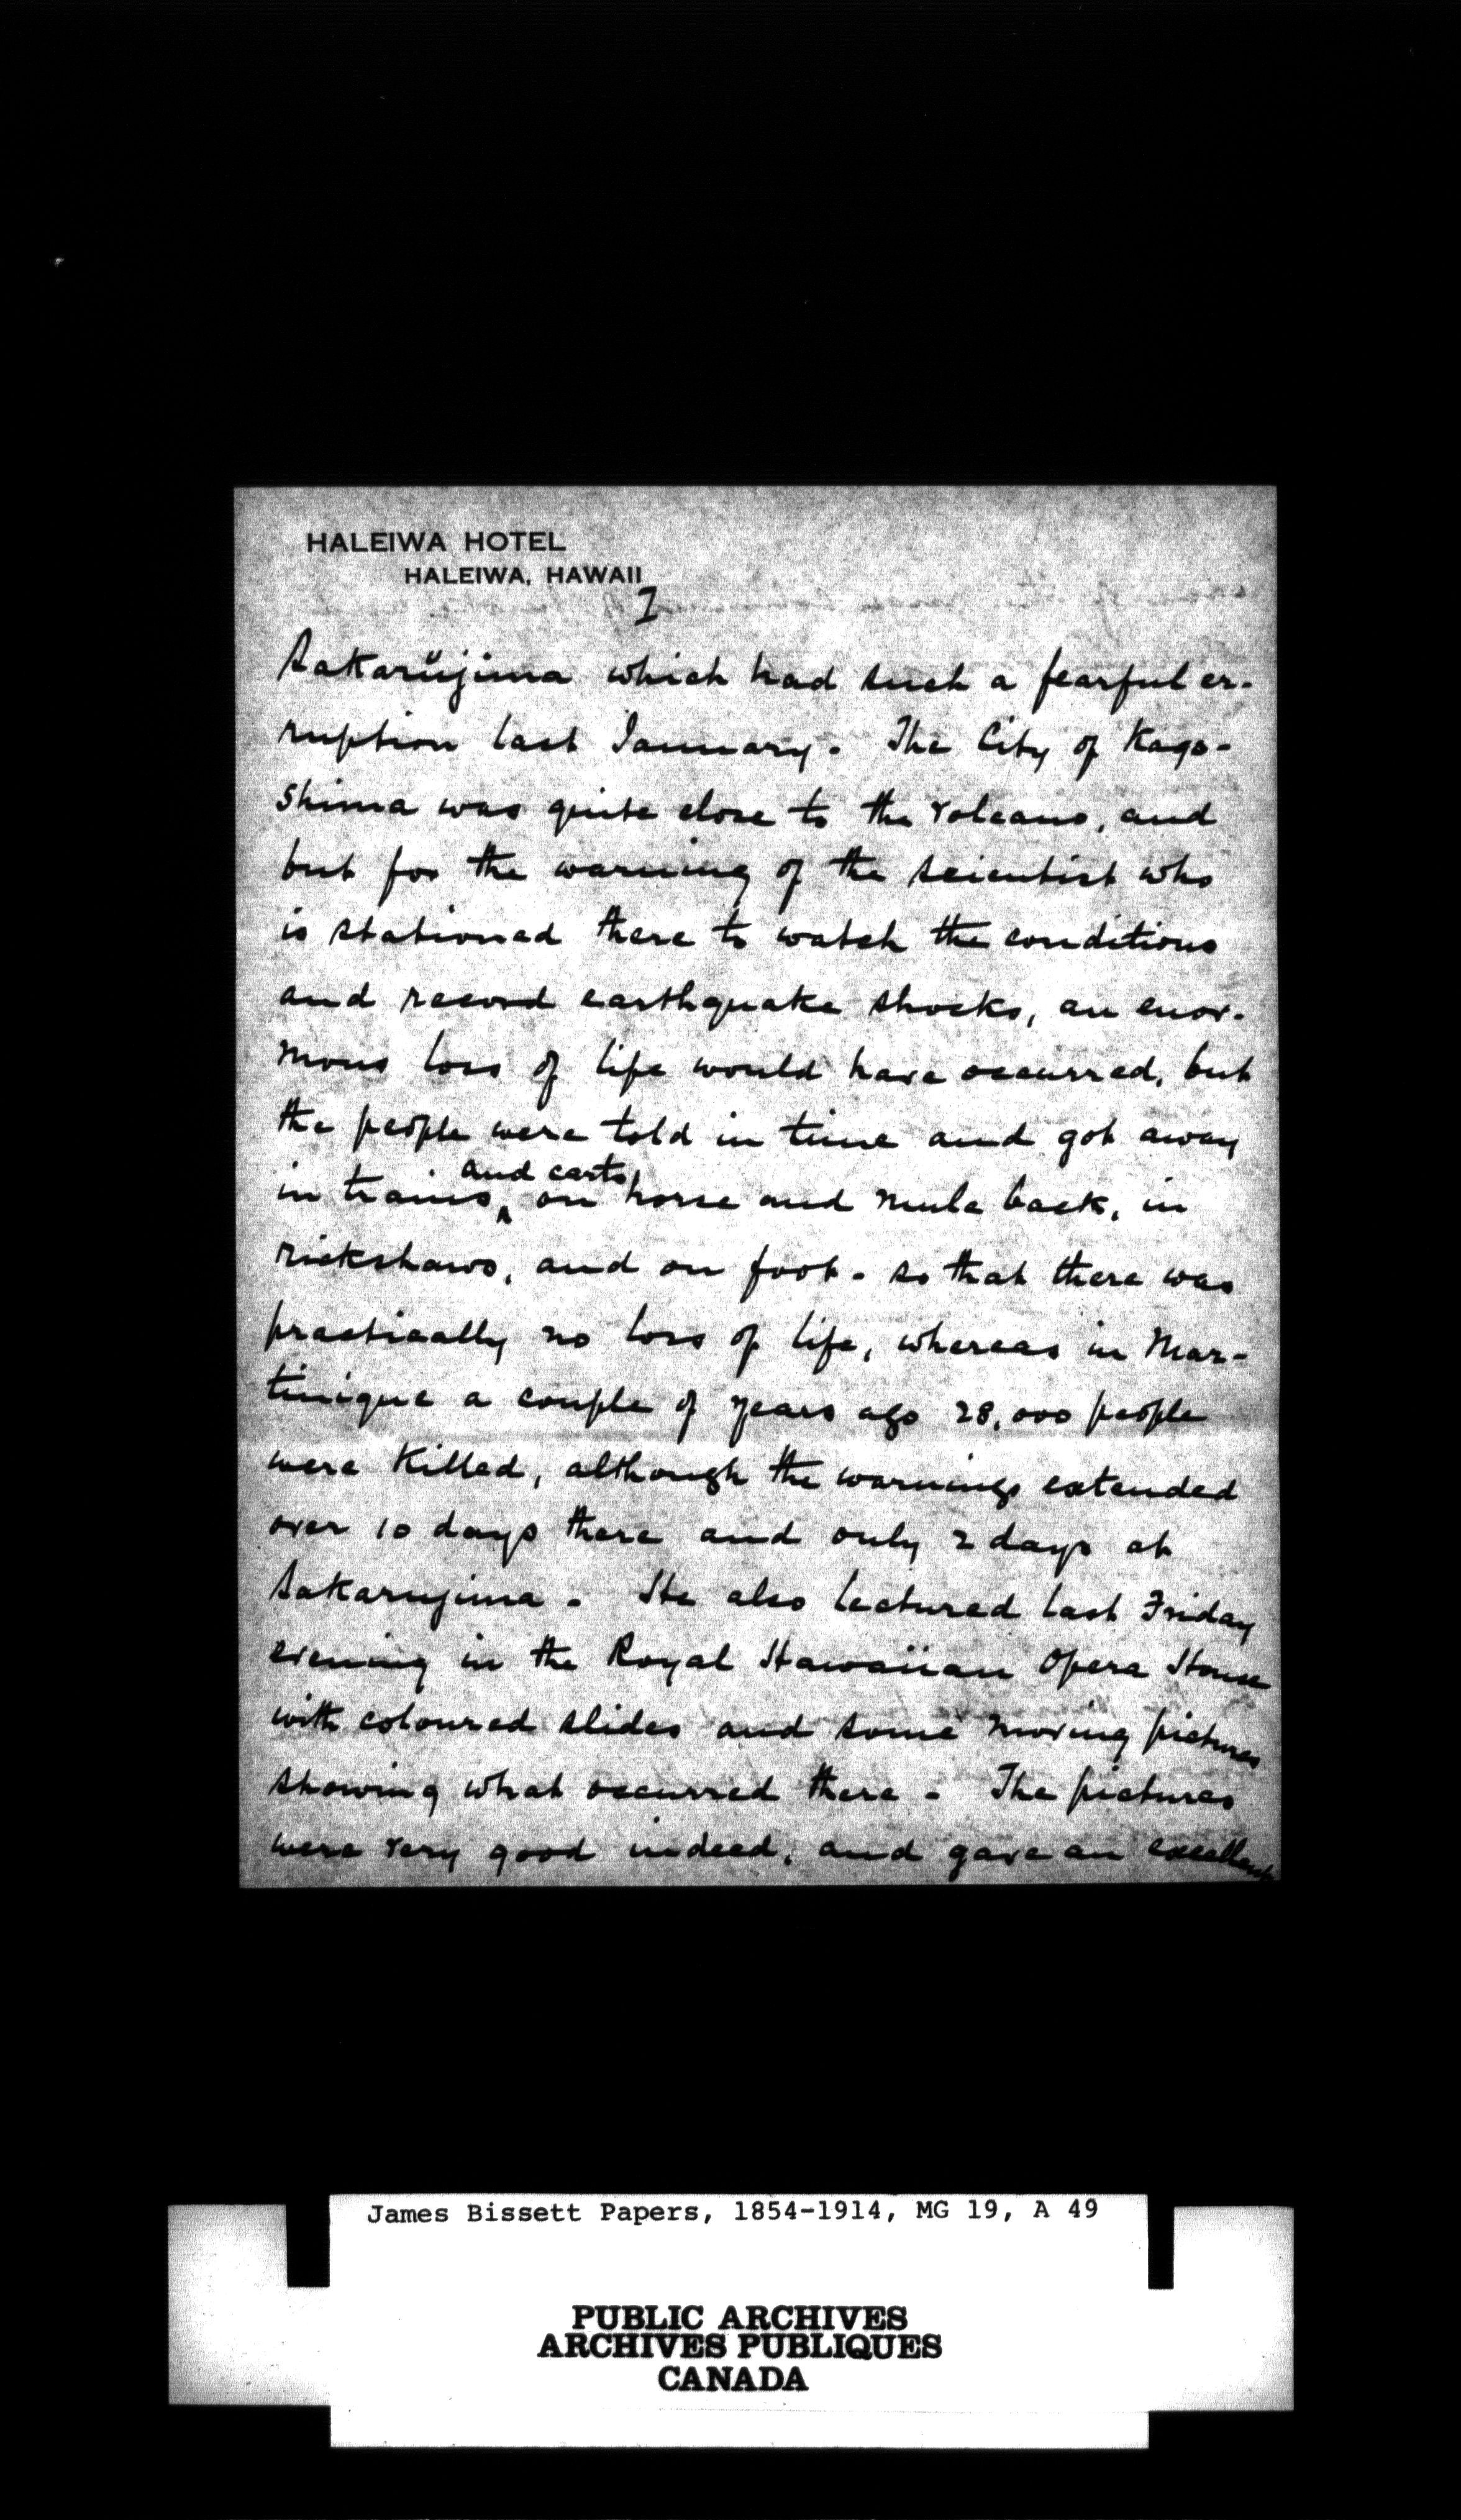 HALEIWA HOTEL
HALEIWA, HAWAII
7
Sakarŭjima which had such a fearful er-
ruption last January. The City of Kago-
shima was quite close to the volcano, and
but for the warning of the scientist who
is stationed there to watch the conditions
and record earthquake shocks, an enor-
mous loss of life would have occurred, but
the people were told in time and got away
in trains ^and carts on horse and mule back, in
rickshaws, and on foot. so that there was
practically no loss of life, whereas in Mar-
tinique a couple of years ago 28,000 people
were killed, although the warnings extended
over 10 days there and only 2 days at
Sakarujima. He also lectured last Friday
evening in the Royal Hawaiian Opera House
with coloured slides and some moving pictures
showing what occurred there. The pictures
were very good indeed, and gave an excellent
James Bissett Papers, 1854-1914, MG 19, A 49
PUBLIC ARCHIVES
ARCHIVES PUBLIQUES
CANADA